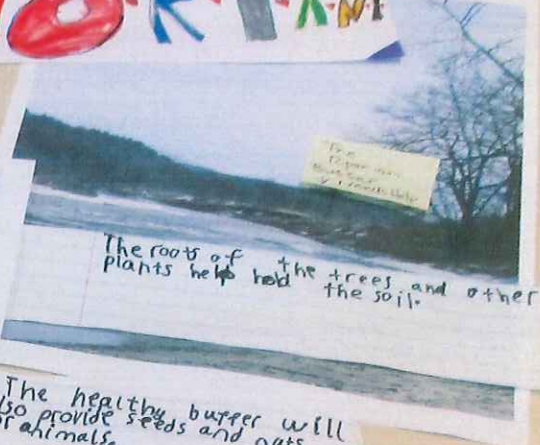 The
Riparian
Buffer
The roots of the trees and other
plants help hold the soil.
The healthy buffer will
lso provide seeds and nuts
or animals.